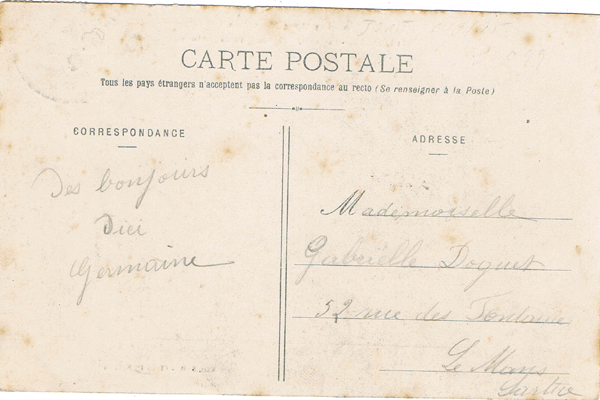 CARTE POSTALE
Tous les pays étrangers n'acceptent pas la correspondance au recto (Se renseigner à la Poste)
CORRESPONDANCE
Des bonjours
Dici
Germaine
ADRESSE
Mademoiselle
Gabrielle Doguet
52 rue des Fontaine
Le Mans
Sarthe